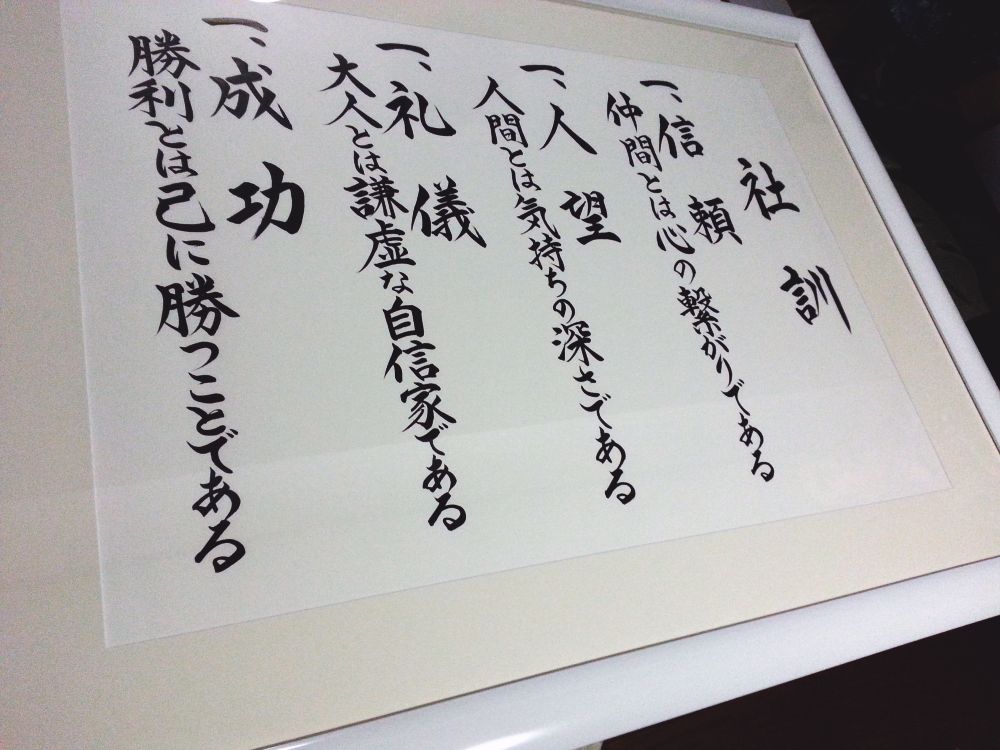 社訓
一、信頼
仲間とは心の繋がりである
一、人望
人間とは気持ちの深さである
一、礼儀
大人とは謙虚な自信家である
一、成功
勝利とは己に勝つことである